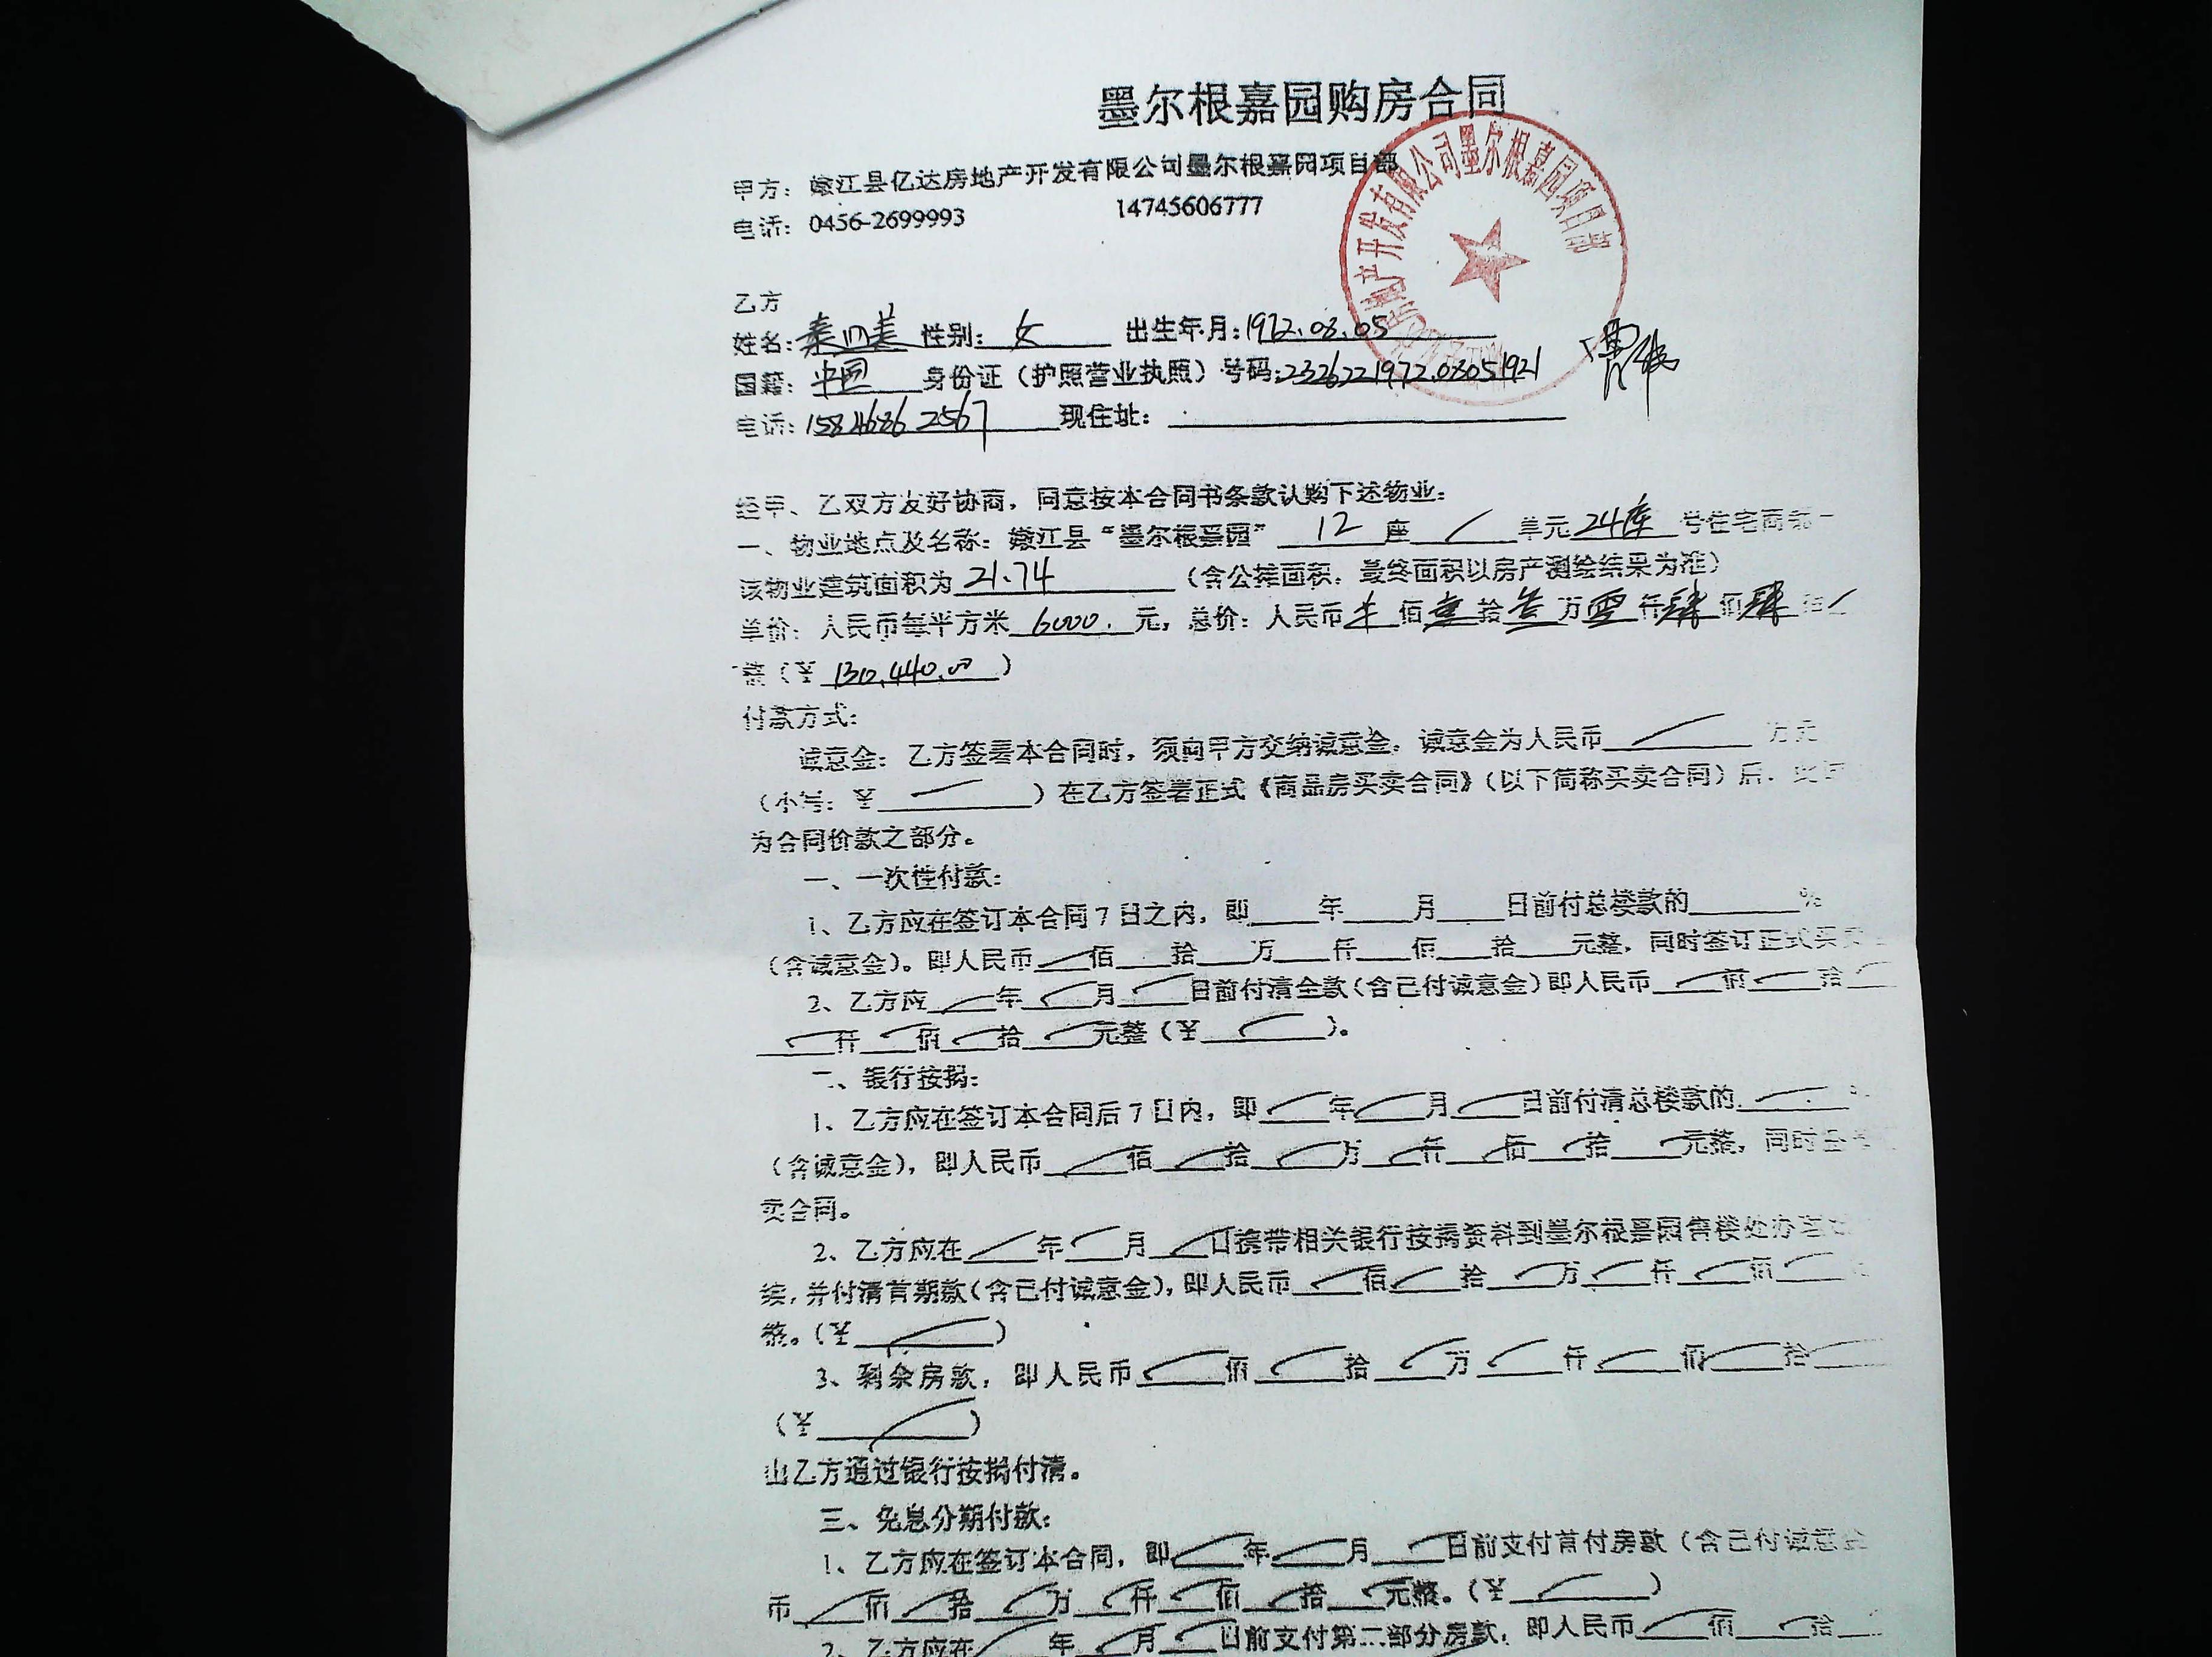 墨尔根嘉园购房合同
甲方：嫩江县亿达房地产开发有限公司墨尔根嘉园项目部
电话：0456-2699993 14745606777
房地产开发有限公司墨尔根嘉园项目部
乙方
姓名：秦 美 性别：女 出生年月：1972.08.05
国籍：中国 身份证（护照营业执照）号码：2326221972.08051921
电话：15846862567 现住址：
经甲、乙双方友好协商，同意按本合同书条款认购下述物业：
一、物业地点及名称：嫩江县“墨尔根嘉园” 12 座 / 单元 24库 号住宅商
该物业建筑面积为 21.74 （含公摊面积，最终面积以房产测绘结果为准）
单价：人民币每平方米 6000. 元，总价：人民币 佰壹拾叁万零仟肆佰肆拾
整（¥ 130,440.00 ）
付款方式：
诚意金：乙方签署本合同时，须向甲方交纳诚意金，诚意金为人民币 / 万元
（小写：¥ / ）在乙方签署正式《商品房买卖合同》（以下简称买卖合同）后，此
为合同价款之部分。
一、一次性付款：
1、乙方应在签订本合同7日之内，即____年____月____日前付总楼款的____%
（含诚意金）。即人民币 / 佰___拾___万___仟___佰___拾___元整，同时签订正式买
2、乙方应 / 年 / 月 / 日前付清全款（含已付诚意金）即人民币 / 佰 / 拾 /
/ 仟 / 佰 / 拾 / 元整（¥ / ）。
二、银行按揭：
1、乙方应在签订本合同后7日内，即 / 年 / 月 / 日前付清总楼款的 / %
（含诚意金），即人民币 / 佰 / 拾 / 万 / 仟 / 佰 / 拾 / 元整，同时
卖合同。
2、乙方应在 / 年 / 月 / 日携带相关银行按揭资料到墨尔根嘉园售楼处办
续，并付清首期款（含已付诚意金），即人民币 / 佰 / 拾 / 万 / 仟 / 佰 /
整。（¥ / ）
3、剩余房款，即人民币 / 佰 / 拾 / 万 / 仟 / 佰 / 拾 /
（¥ / ）
由乙方通过银行按揭付清。
三、免息分期付款：
1、乙方应在签订本合同，即 / 年 / 月 / 日前支付首付房款（含已付诚意金
币 / 佰 / 拾 / 万 / 仟 / 佰 / 拾 / 元整。（¥ / ）
2、乙方应在 / 年 / 月 / 日前支付第二部分房款，即人民币 / 佰 / 拾